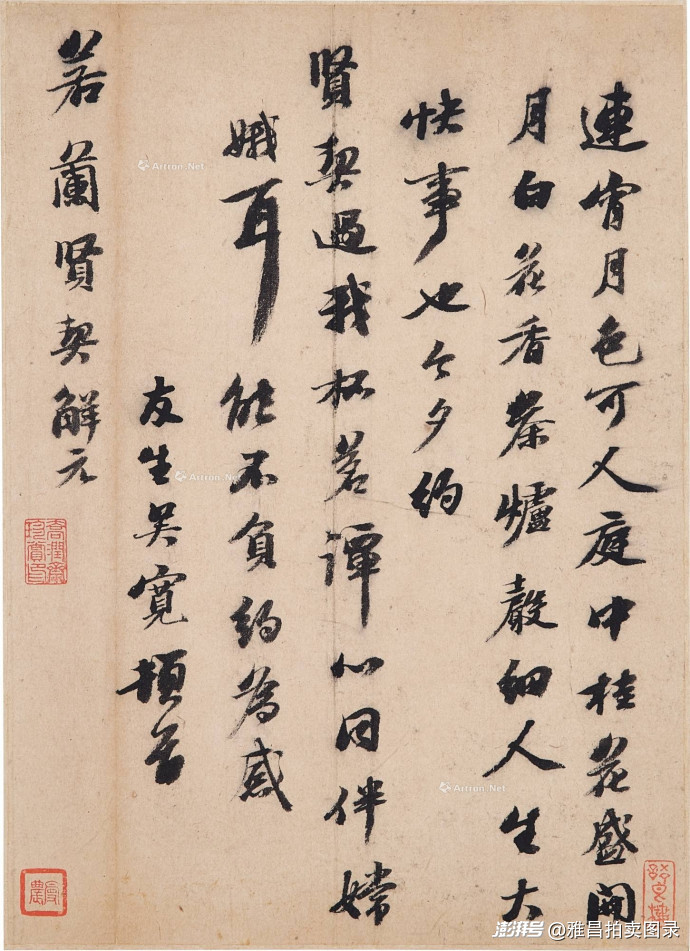 連宵月色可人庭中桂花盛開
月白花香茶爐聲細人生大
快事也今夕約
賢契過我杯茗譚心同伴嫦
娥耳能不負約為感
友生吳寬頓首
若蘭賢契解元
Artron.Net
Artron.Net
Artron.Net
澎湃号@雅昌拍卖图录